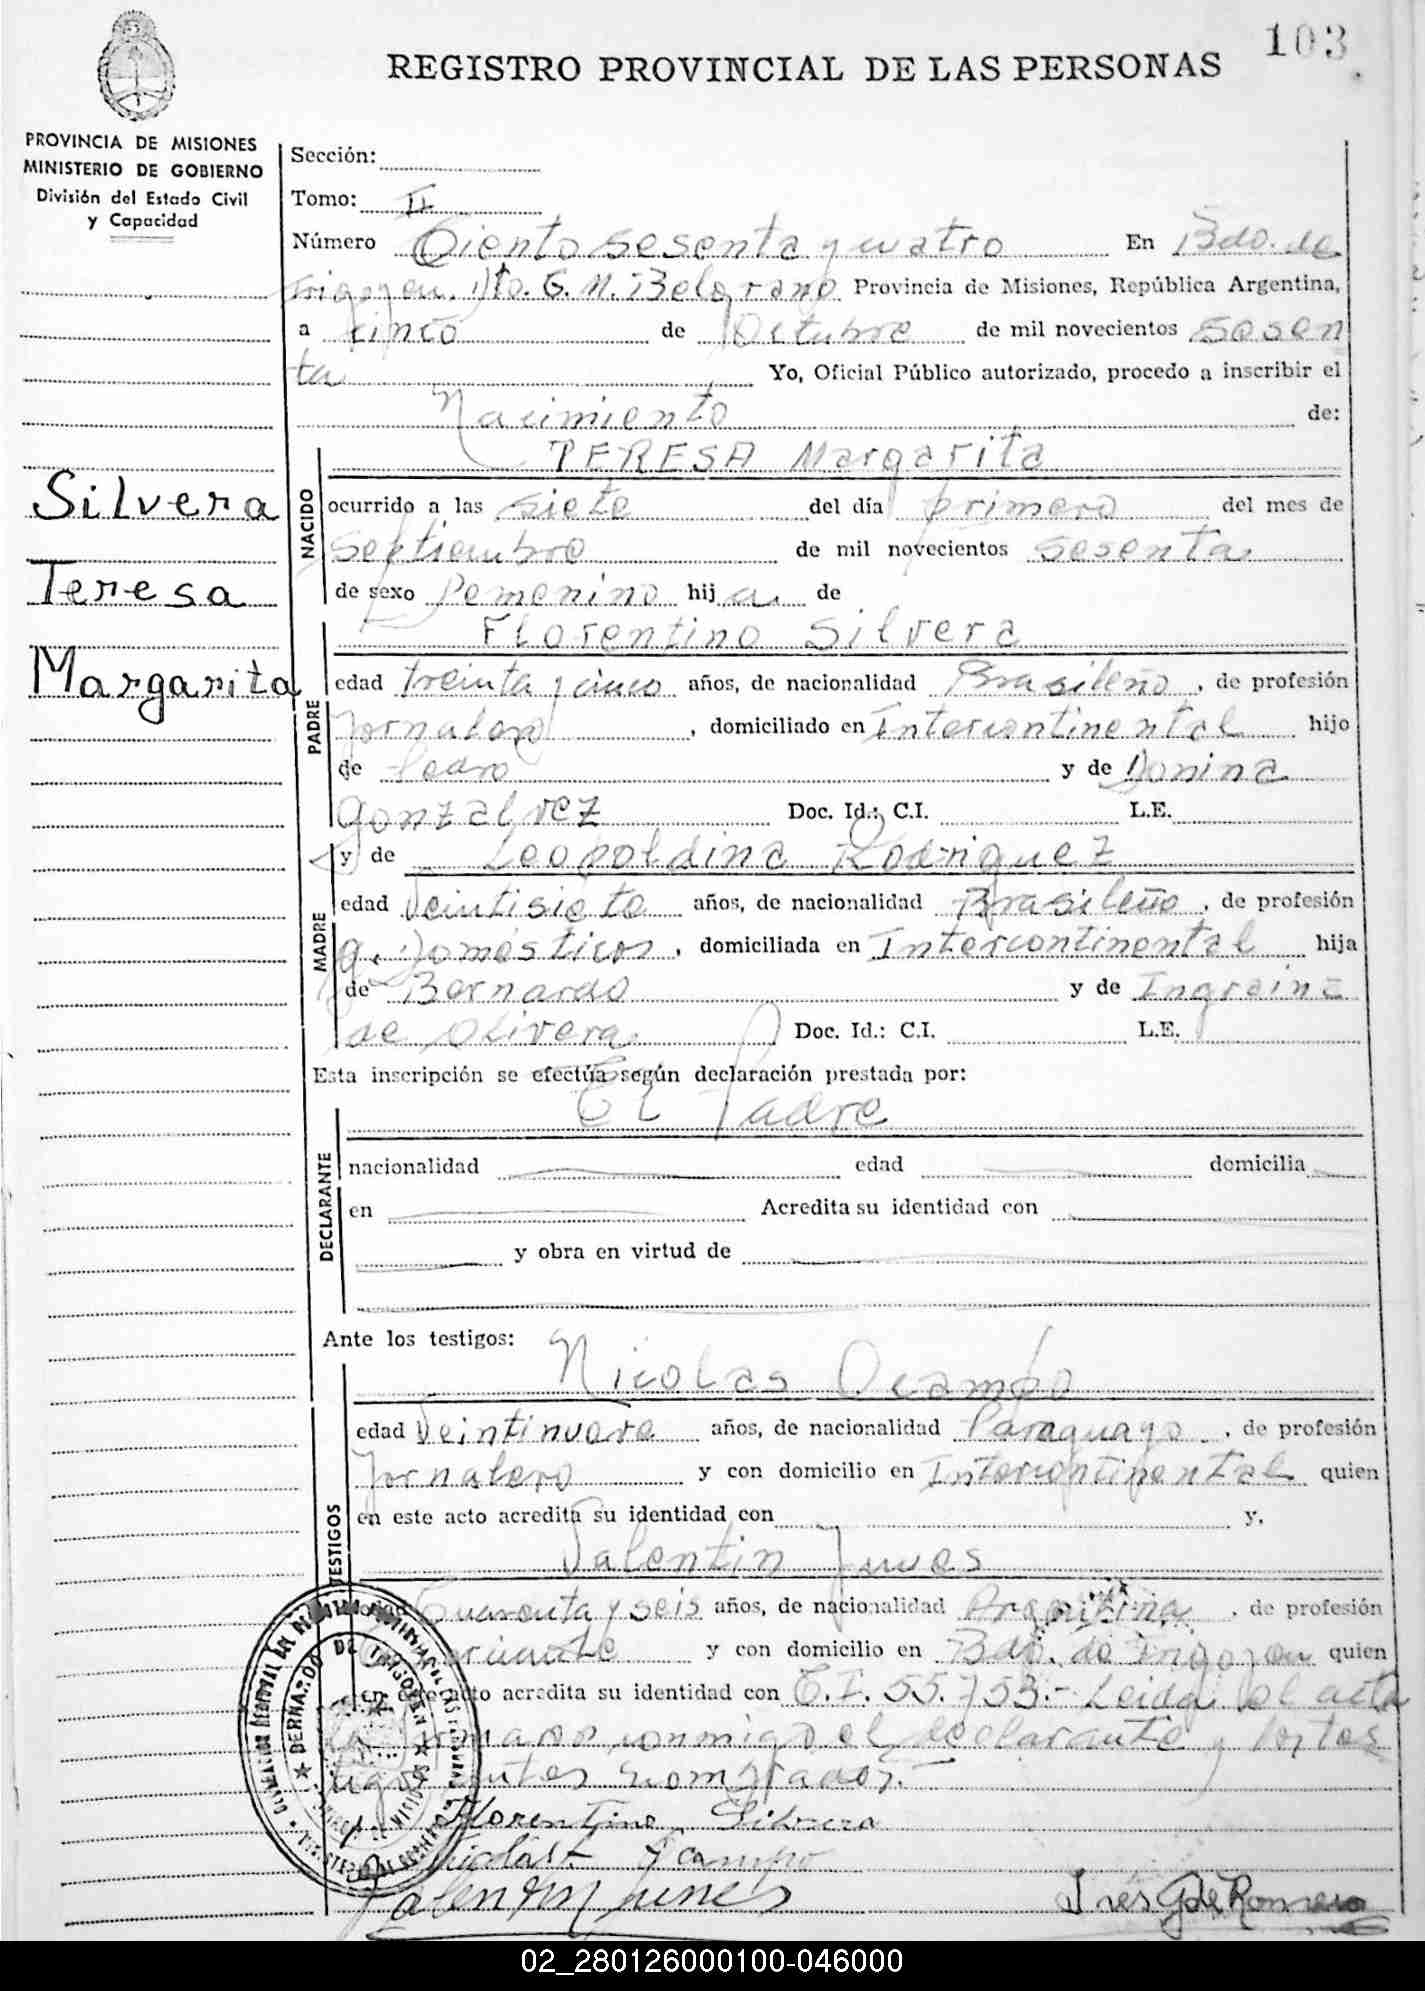 103
REGISTRO PROVINCIAL DE LAS PERSONAS
PROVINCIA DE MISIONES
MINISTERIO DE GOBIERNO
División del Estado Civil
y Capacidad
Sección:
Tomo: II
Número Ciento sesenta y cuatro En Bdo. de
Irigoyen, Dto. G. M. Belgrano Provincia de Misiones, República Argentina,
a cinco de Octubre de mil novecientos sesen
ta Yo, Oficial Público autorizado, procedo a inscribir el
Nacimiento de:
TERESA Margarita
Silvera
Teresa
Margarita
NACIDO
ocurrido a las siete del día primero del mes de
Septiembre de mil novecientos sesenta
de sexo Femenino hija de
Florentino Silvera
PADRE
edad treinta y cinco años, de nacionalidad Brasileño, de profesión
Jornalero, domiciliado en Intercontinental hijo
de Pedro y de Donina
Gonzalvez Doc. Id.: C.I. L.E.
y de Leopoldina Rodriguez
MADRE
edad Veintisiete años, de nacionalidad Brasileño, de profesión
q. Domésticos, domiciliada en Intercontinental hija
de Bernardo y de Ingraina
de Olivera Doc. Id.: C.I. L.E.
Esta inscripción se efectúa según declaración prestada por:
El Padre
DECLARANTE
nacionalidad edad domicilia
en Acredita su identidad con
y obra en virtud de
Ante los testigos:
Nicolas Ocampo
TESTIGOS
edad Veintinueve años, de nacionalidad Paraguayo, de profesión
Jornalero y con domicilio en Intercontinental quien
en este acto acredita su identidad con y,
Valentin Junes
Cuarenta y seis años, de nacionalidad Argentina, de profesión
y con domicilio en Bdo. de Irigoyen quien
en este acto acredita su identidad con C.I. 55.753.- Leida el acta
conmigo el declarante y los tes
tigos antes nombrados.
Florentino Silvera
Nicolas Ocampo
Valentin Junes
Ines G de Romero
02_280126000100-046000